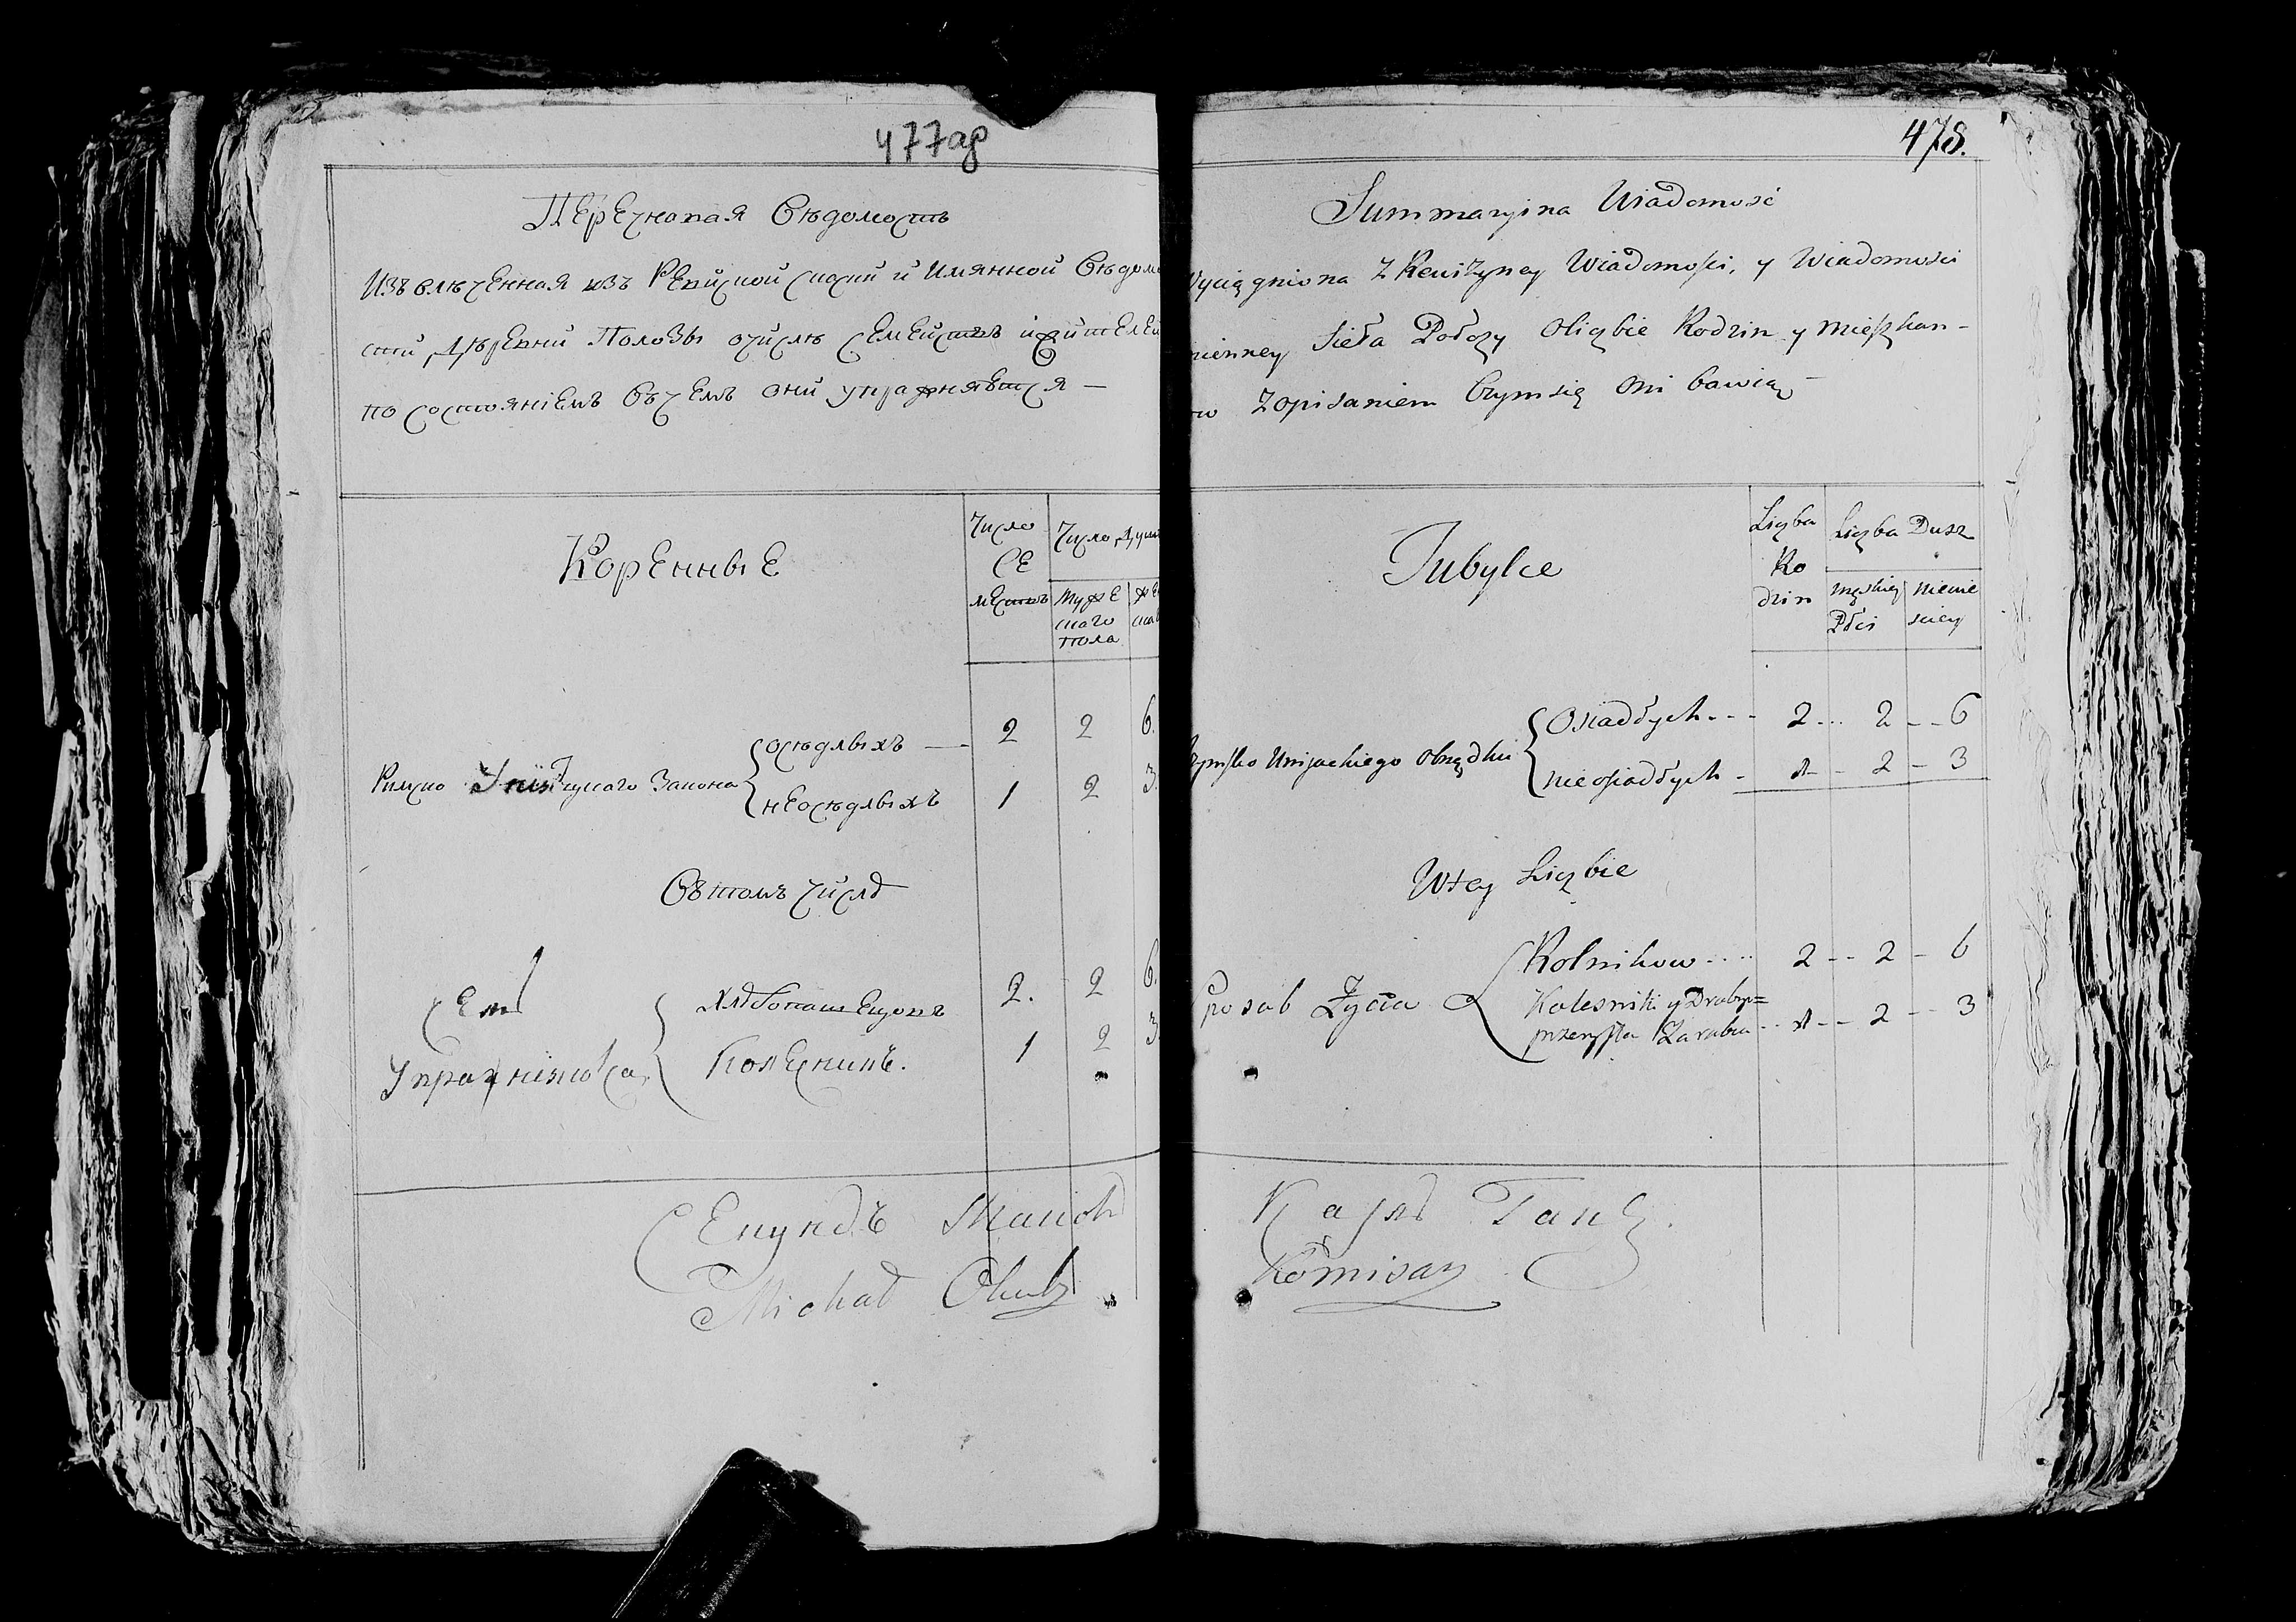 477аб
Перечновая Вѣдомость
Извлѣченная изъ Ревиской скаски и Имянной Вѣдомо
сти, Дѣревни Полозы очислѣ семействъ ижителей
по состояніемъ Въчемъ они упражняются —
Коренные
Число
се
мействъ
Число Душ
Муже
скаго
пола
Римско Унитцкаго Закона
осѣдлыхъ — 2 2 6.
неосѣдлыхъ 1 2 3.
Въ томъ числѣ
Сем
Упражнѣнія
Хлѣбопашецовъ 2. 2 6.
Колесникъ. 1 2 3.
Michał
478.
Summaryina Wiadomość
Wyciągniona Z Rewizyney Wiadomości, y Wiadomości
mienney Sieła Połozy Oliczbie Rodzin y mieszkan-
ow Zopisaniem Czymsię Oni bawią —
Tubylce
Liczba
Ro
dzin
Liczba Dusz
męskiey
Płci
niewie
sciey
Rzymsko Unijackiego Obrządku
Osiadłych - - - 2 - - - 2 - - 6
nieosiadłych - 1 - - 2 - 3
Wtey Liczbie
Sposob Życia
Rolnikow - - - - 2 - - 2 - 6
Kolesniki y Drobny=
przemysłu Zarabia - - 1 - - 2 - - 3
Komisarz